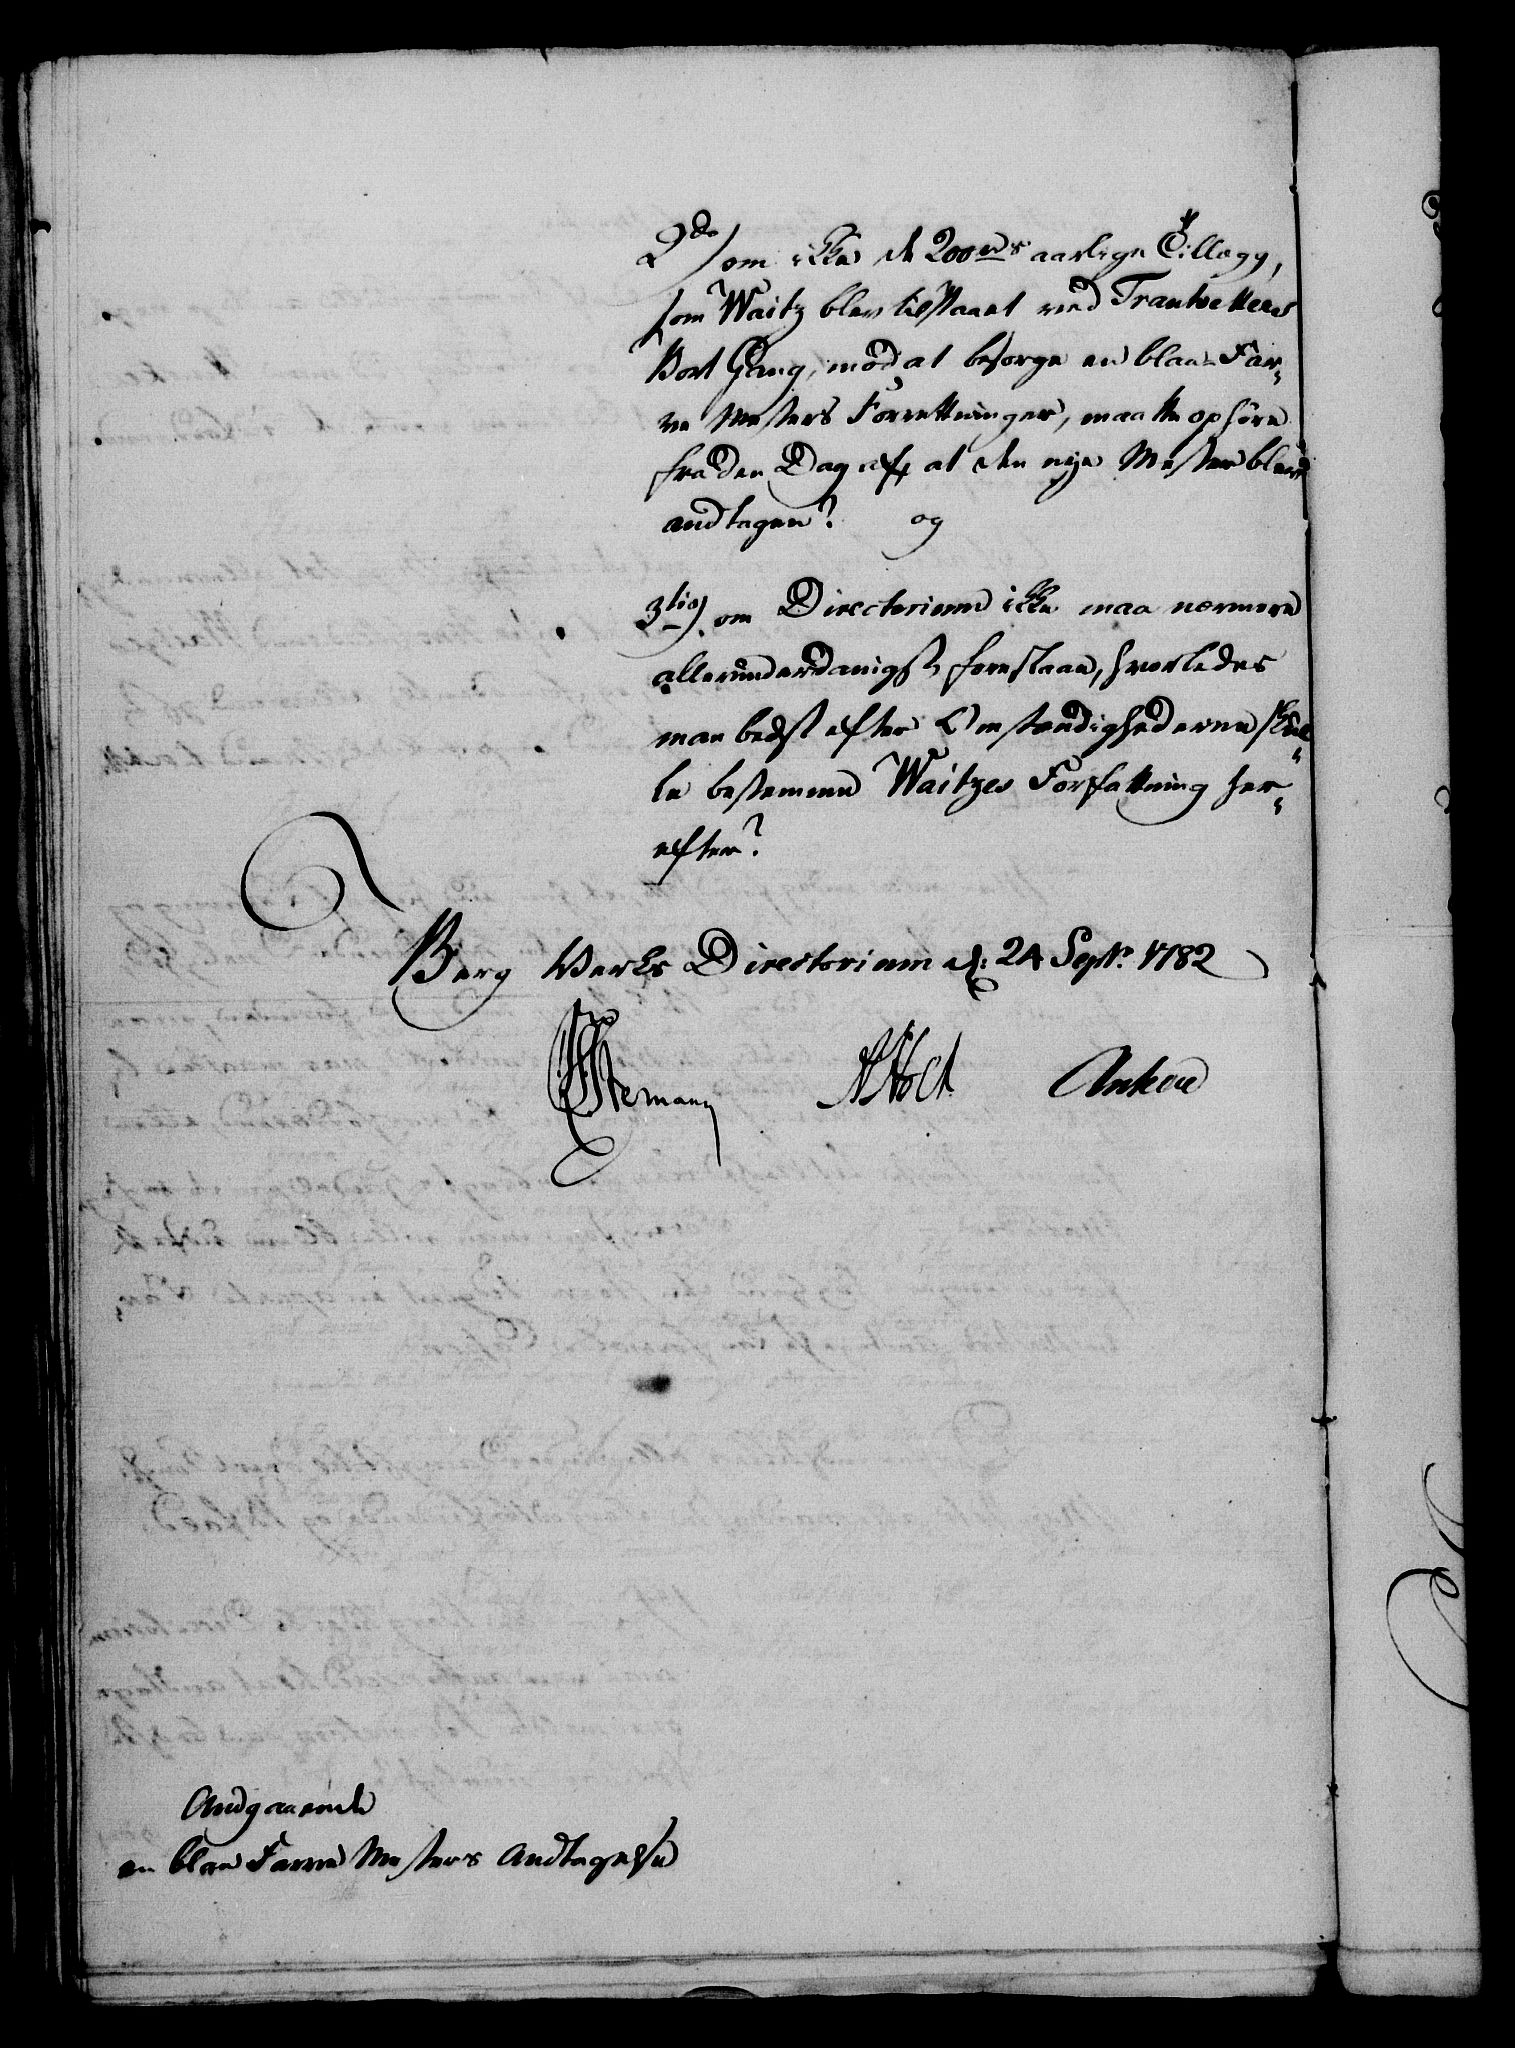 2do/ om ikke de 200 rd.s aarlige Tillæg,
som Waitz blev tilstaaet ved Trautvetters
Bort Gang, mod at besørge en blaae Far-
ve Mesters Forrettninger, maatte ophøre
fra den Dag af at den nye Mester blev
andtagen? og
3tio) om Directorium ikke maa nærmere
allerunderdanigst forestaae, hvorledes
man bedst efter Omstændighederne skul-
le bestemme Waitzes Forfattning her-
efter?
Berg Værks Directorium d: 24 Septr. 1782
Stemann Holt Anker
Andgaaende
en blaae Farve Mesters Andtagelse